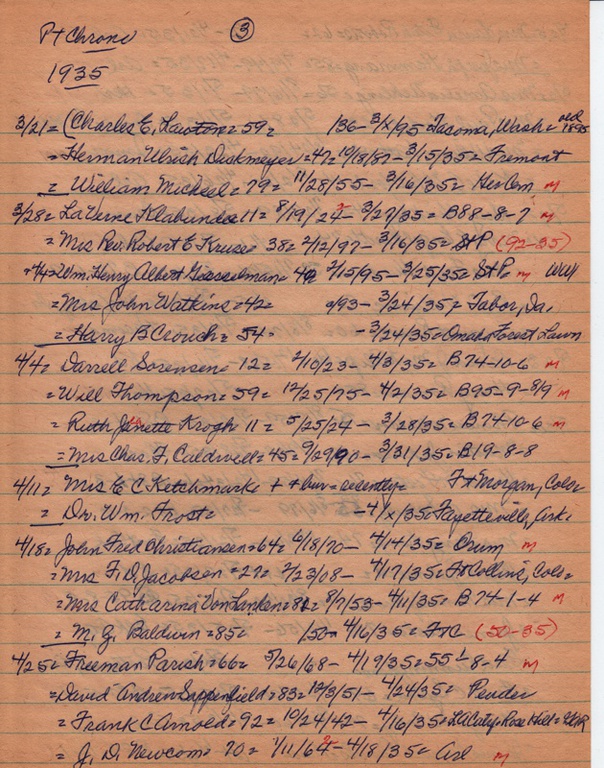 Pt Chrono ③
1935
3/21= (Charles E. Lawton= 59= 136- 3/x/95= Tacoma, Wash= old 1895
= Herman Ulrich Deskmeyer =47= 10/18/87- 3/15/35= Fremont
= William Micheel= 79= 11/28/55- 3/16/35= HerCem m
3/28= LaVerne Klabunde= 11= 8/19/24 2- 3/27/35= B88-8-7 m
= Mrs Rev. Robert E Kruse= 38= 2/12/97- 3/16/35= St P (92-35)
=4/4= Wm. Henry Albert Giesselman= 40 2/15/95- 3/25/35= St P= m WW1
= Mrs John Watkins= 42= /93- 3/24/35= Tabor, Ia.
= Harry B Crouch= 54= -3/24/35= Omaha Forest Lawn
4/4= Darrell Sorensen= 12= 2/10/23- 4/3/35= B74-10-6 m
= Will Thompson= 59= 12/25/75- 4/2/35= B95-9-8/9 m
= Ruth Janette Krogh 11= 5/25/24- 3/28/35= B74-10-6 m
= Mrs Chas. F. Caldwell= 45= 9/29/90- 3/31/35= B19-8-8
4/11= Mrs E C Ketchmark= + + bur= recently= Ft Morgan, Colo=
= Dr. Wm. Frost= -4/x/35= Fayetteville, Ark.
4/18= John Fred Christiansen= 64= 6/18/70- 4/14/35= Orum m
= Mrs F. D. Jacobsen= 27= 2/23/08- 4/17/35= Ft Collins, Colo=
= Mrs Catharina Von Lanken= 81= 8/7/53- 4/11/35= B74-1-4 m
= M. G. Baldwin= 85= /50- 4/16/35= FtC (50-35)
4/25= Freeman Parish= 66= 5/26/68- 4/19/35= 55'-8-4 m
= David Andrew Sappenfield= 83= 10/3/51- 4/24/35= Pender
= Frank C Arnold= 92= 10/24/42- 4/16/35= Rose Hill= GAR
= J. D. Newcom= 70= 1/11/64 5- 4/18/35= Arl m